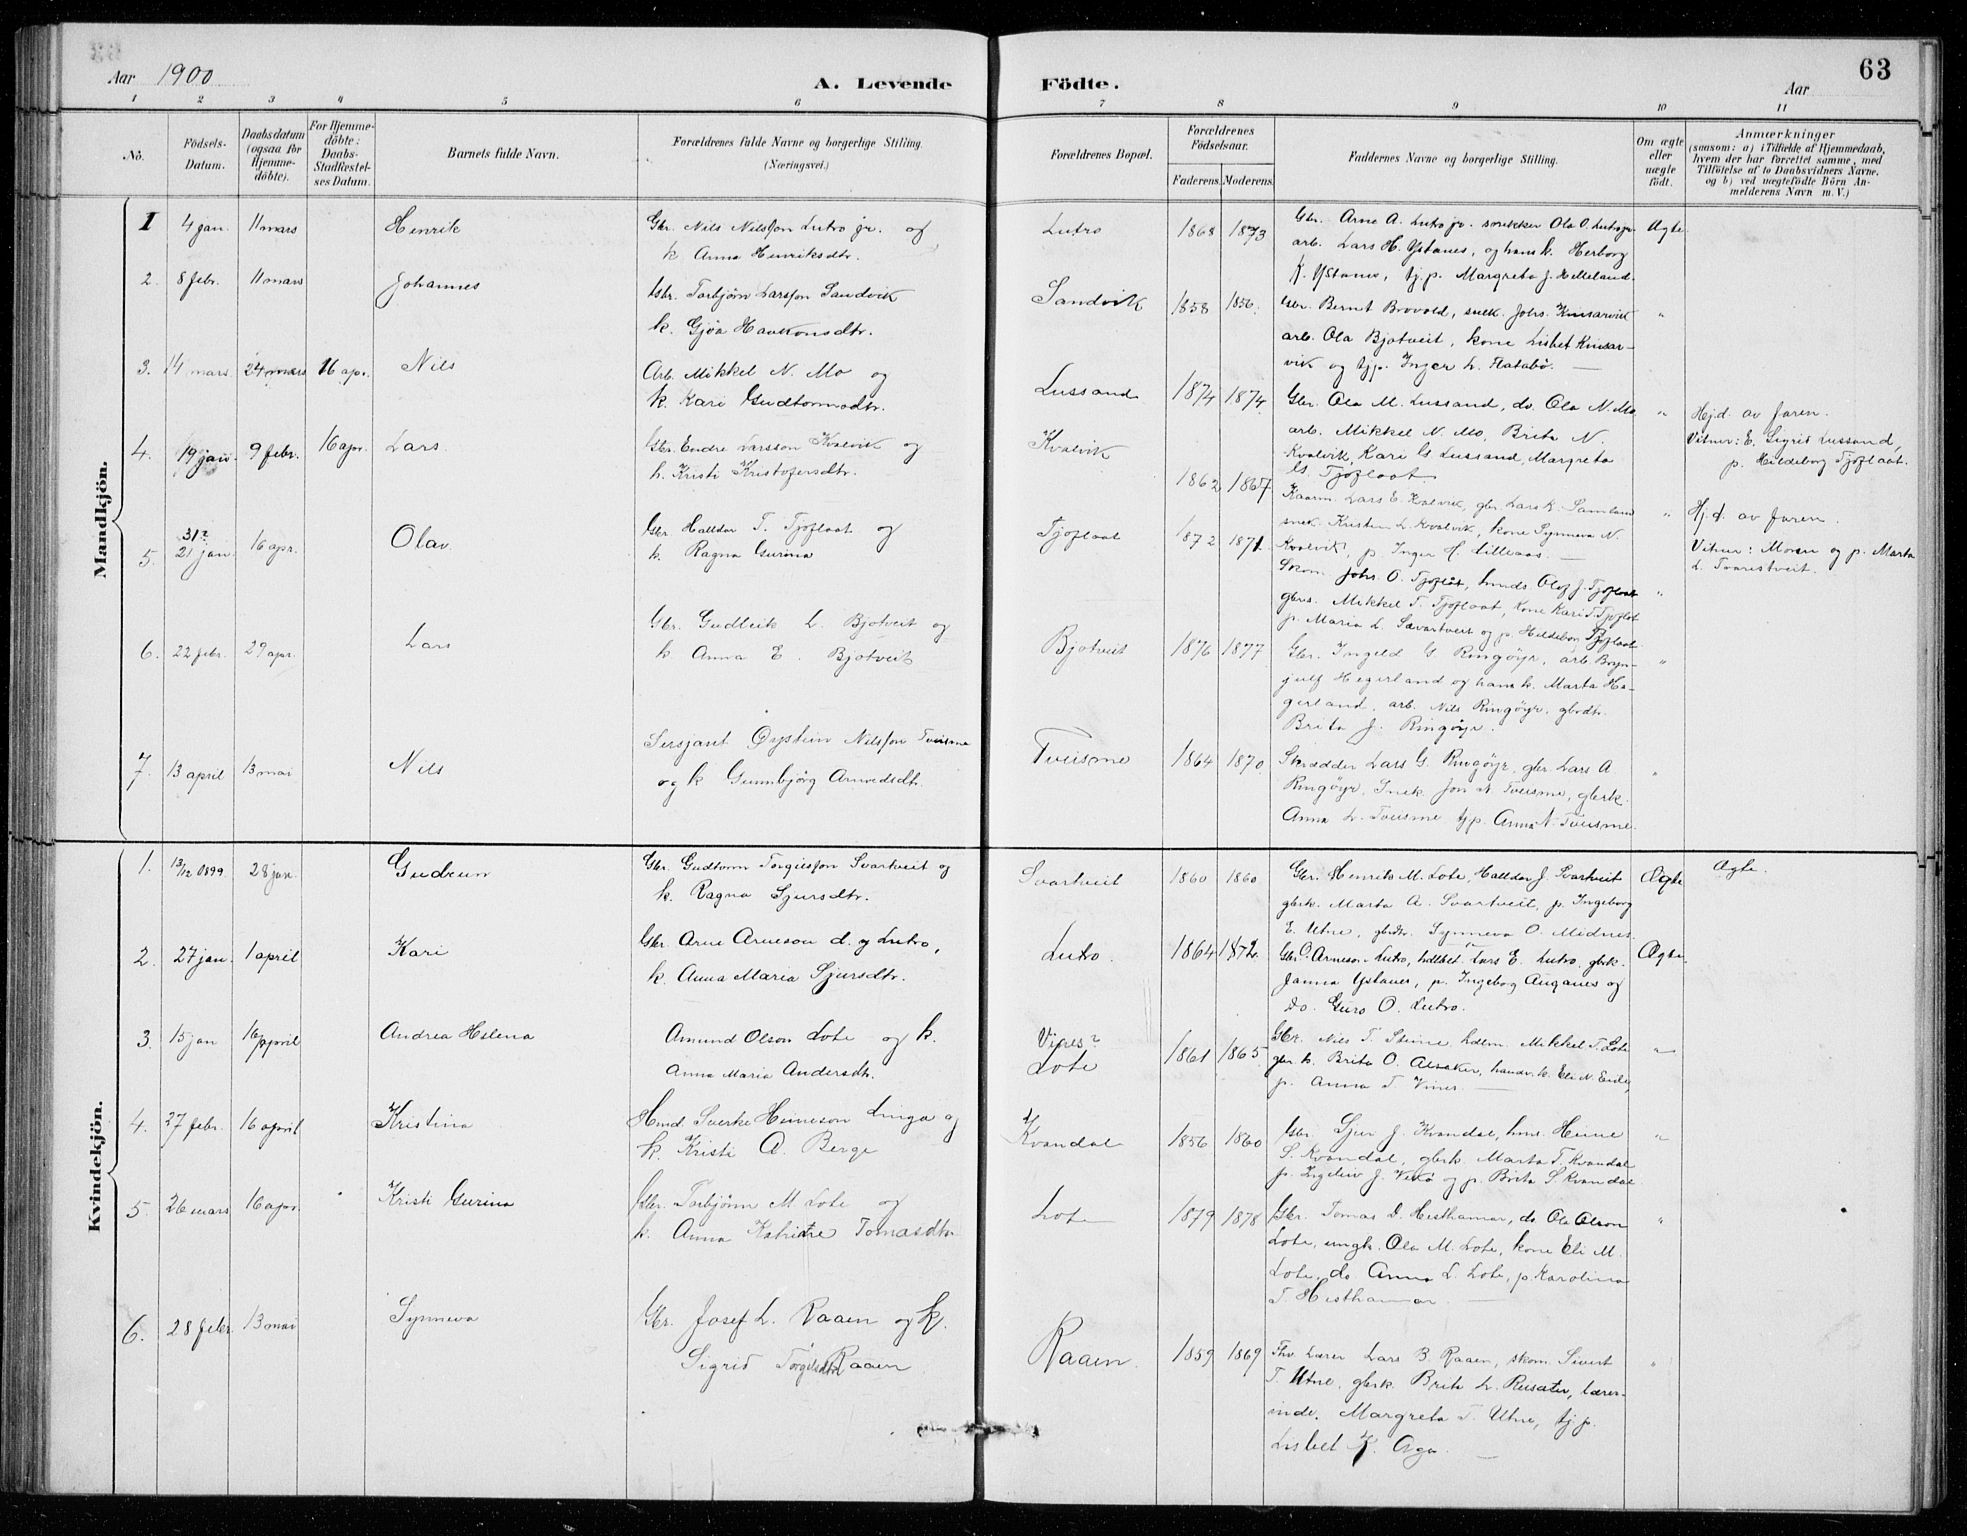 63
Aar 1900
A. Levende Födte.
Aar
1 2 3 4 5 6 7 8 9 10 11
No.
Födsels-Datum.
Daabsdatum (ogsaa for Hjemme-döbte).
For Hjemme-döbte: Daabs-Stadfæstel-ses Datum.
Barnets fulde Navn.
Forældrenes fulde Navne og borgerlige Stilling. (Næringsvei.)
Forældrenes Bopæl.
Forældrenes Födselsaar.
Faderens. Moderens.
Faddernes Navne og borgerlige Stilling.
Om ægte eller uægte födt.
Anmærkninger
(saasom: a) i Tilfælde af Hjemmedaab, hvem der har forrettet samme, med Tilföielse af to Daabsvidners Navne, og b) ved uægtefödte Börn An-melderens Navn m. V.)
Mandkjön.
1 4 jan. 11 mars Henrik
Gbr. Nils Nilsson Lutro jr. og
k Anna Henriksdtr.
Lutro 1868 1873
Gbr. Arne A. Lutro jr. snekker Ola O. Lutro jr.
arb. Lars H. Ystanes, og hans k. Herborg
K. Ystanes, tj.p. Margreta J. Helleland.
Ægte
2. 8 febr. 11 mars Johannes
Gbr. Torbjörn Larsson Sandvik
k. Gjöa Haakonsdtr.
Sandvik 1858 1856.
Gbr. Bernt Brovold, snek. Johs. Kinsarvik
arb. Ola Bjotveit, kone Lisbet Kinsar-
vik og tjp. Inger L. Flatabö. —
"
3. 14 mars 24 mars 16 apr. Nils
Arb. Mikkel N. Mo og
k. Kari Gudtormsdtr.
Lussand 1874 1874
Gbr. Ola M. Lussand, do. Ola N. Mo
arb. Mikkel N. Mo, Brita N.
Kvalvik, Kari G Lussand, Margreta
G. Tjoflaat.
"
Hj.d. av faren.
Vitner: E. Sigrid Lussand,
p. Hildeborg Tjoflaat.
4. 19 jan. 9 febr. 16 apr. Lars
Gbr. Endre Larsson Kvalvik og
h. Kristi Kristofersdtr.
Kvalvik 1862 1867
Kaarm. Lars E. Kvalvik, gbr. Lars L. Samland
snek. Kristen L. Kvalvik, kone Synneva N.
Kvalvik, p. Inger H. Lilleaas. —
"
Hj.d. av faren.
Vitner: Moren og p. Marta
L. Tvartveit.
5. 31?
21 jan 16 apr. Olav
Gbr. Halldor T. Tjoflaat og
k. Ragna Gurina
Tjoflaat 1872 1871.
Skom. Johs. O. Tjoflåt, hmds. Olof J. Tjoflaat
gbrs. Mikkel T. Tjoflaat, Kone Kari T. Tjoflot
p. Maria L. Sævartveit og p. Hildebor Tjoflaat
"
6. 22 febr. 29 apr. Lars
Gbr. Gudleik L. Bjotveit og
k Anna E. Bjotveit
Bjotveit 1876 1877
Gbr. Ingeld G. Ringöyr, arb. Bryn-
julf Hegerland og hans k. Marta He-
gerland, arb. Nils Ringöyr, gbrdtr.
Brita J. Ringöyr.
"
7. 13 april 13 mai Nils
Sersjant Öystein Nilsson Tveisme
og k Gunnbjörg Arnvedsdtr.
Tveisme 1864 1870
Skrædder Lars G. Ringöyr, gbr. Lars A
Ringöyr, Snek. Jon N. Tveisme, gbrk.
Anna L. Tveisme tjp. Anna N. Tveisme.
"
Kvindekjön.
1. 13/12 1899. 28 jan. Gudrun
Gbr. Gudtorm Torgilsson Svartveit og
k. Ragna Sjursdtr.
Svartveit 1860 1860
Gbr. Henrik M. Lote, Halldor J. Svartveit
gbrk. Marta A. Svartveit, p. Ingeborg
E. Utne, gbrdtr. Synneva O. Midnes.
Ægte
Ægte.
2. 27 jan. 1 april Kari
Gbr. Arne Arneson d. y Lutro,
k. Anna Maria Sjursdtr.
Lutro. 1864 1872.
Gbr. O. Arneson Lutro, Lars E. Lutro. gbrk.
Janna Ystanes, p. Ingebog Auganes og
do. Guro O. Lutro.
Ægte.
3. 15 jan 16 april Andrea Helena
Amund Olson Lote og k.
Anna Maria Andersdtr.
Vines?
Lote 1861 1865
Gbr. Nils T. Steine, hdlm. Mikkel T. Lote
gbr. k. Brita O. Alsaker, handv. k. Eli N. Eide,
p. Anna T. Vines —
"
4. 27 febr. 16 april Kristina
Hmd. Sverke Heineson Linga og
k. Kristi A. Berge
Kvandal 1856 1860
Gbr. Sjur J. Kvandal, hmd. Heine
S. Kvandal, gbrk. Marta T. Kvandal
p. Ingeliv J. Vikö og p. Brita S. Kvandal
"
5. 26 mars 16 apr. Kristi Gurina
Gbr. Torbjörn M Lote og
k. Anna Katrine Tomasdtr
Lote 1879 1878
Gbr. Tomas D. Hesthamar, do. Ola Olson
Lote, ungk. Ola M. Lote, kone Eli M.
Lote, do Anna L. Lote, p. Karolina
T. Hesthamar —
"
6. 28 febr. 13 mai Synneva
Gbr. Josef L. Raaen og k.
Sigrid Torgilsdtr Raaen
Raaen. 1859 1869
Fhv. Lærer Lars B. Raaen, skom. Sivert
T. Utne, gbrk. Brita L. Reisæter, lærer-
inde. Margreta T. Utne, tj.p.
Lisbet K. Aga. —
"